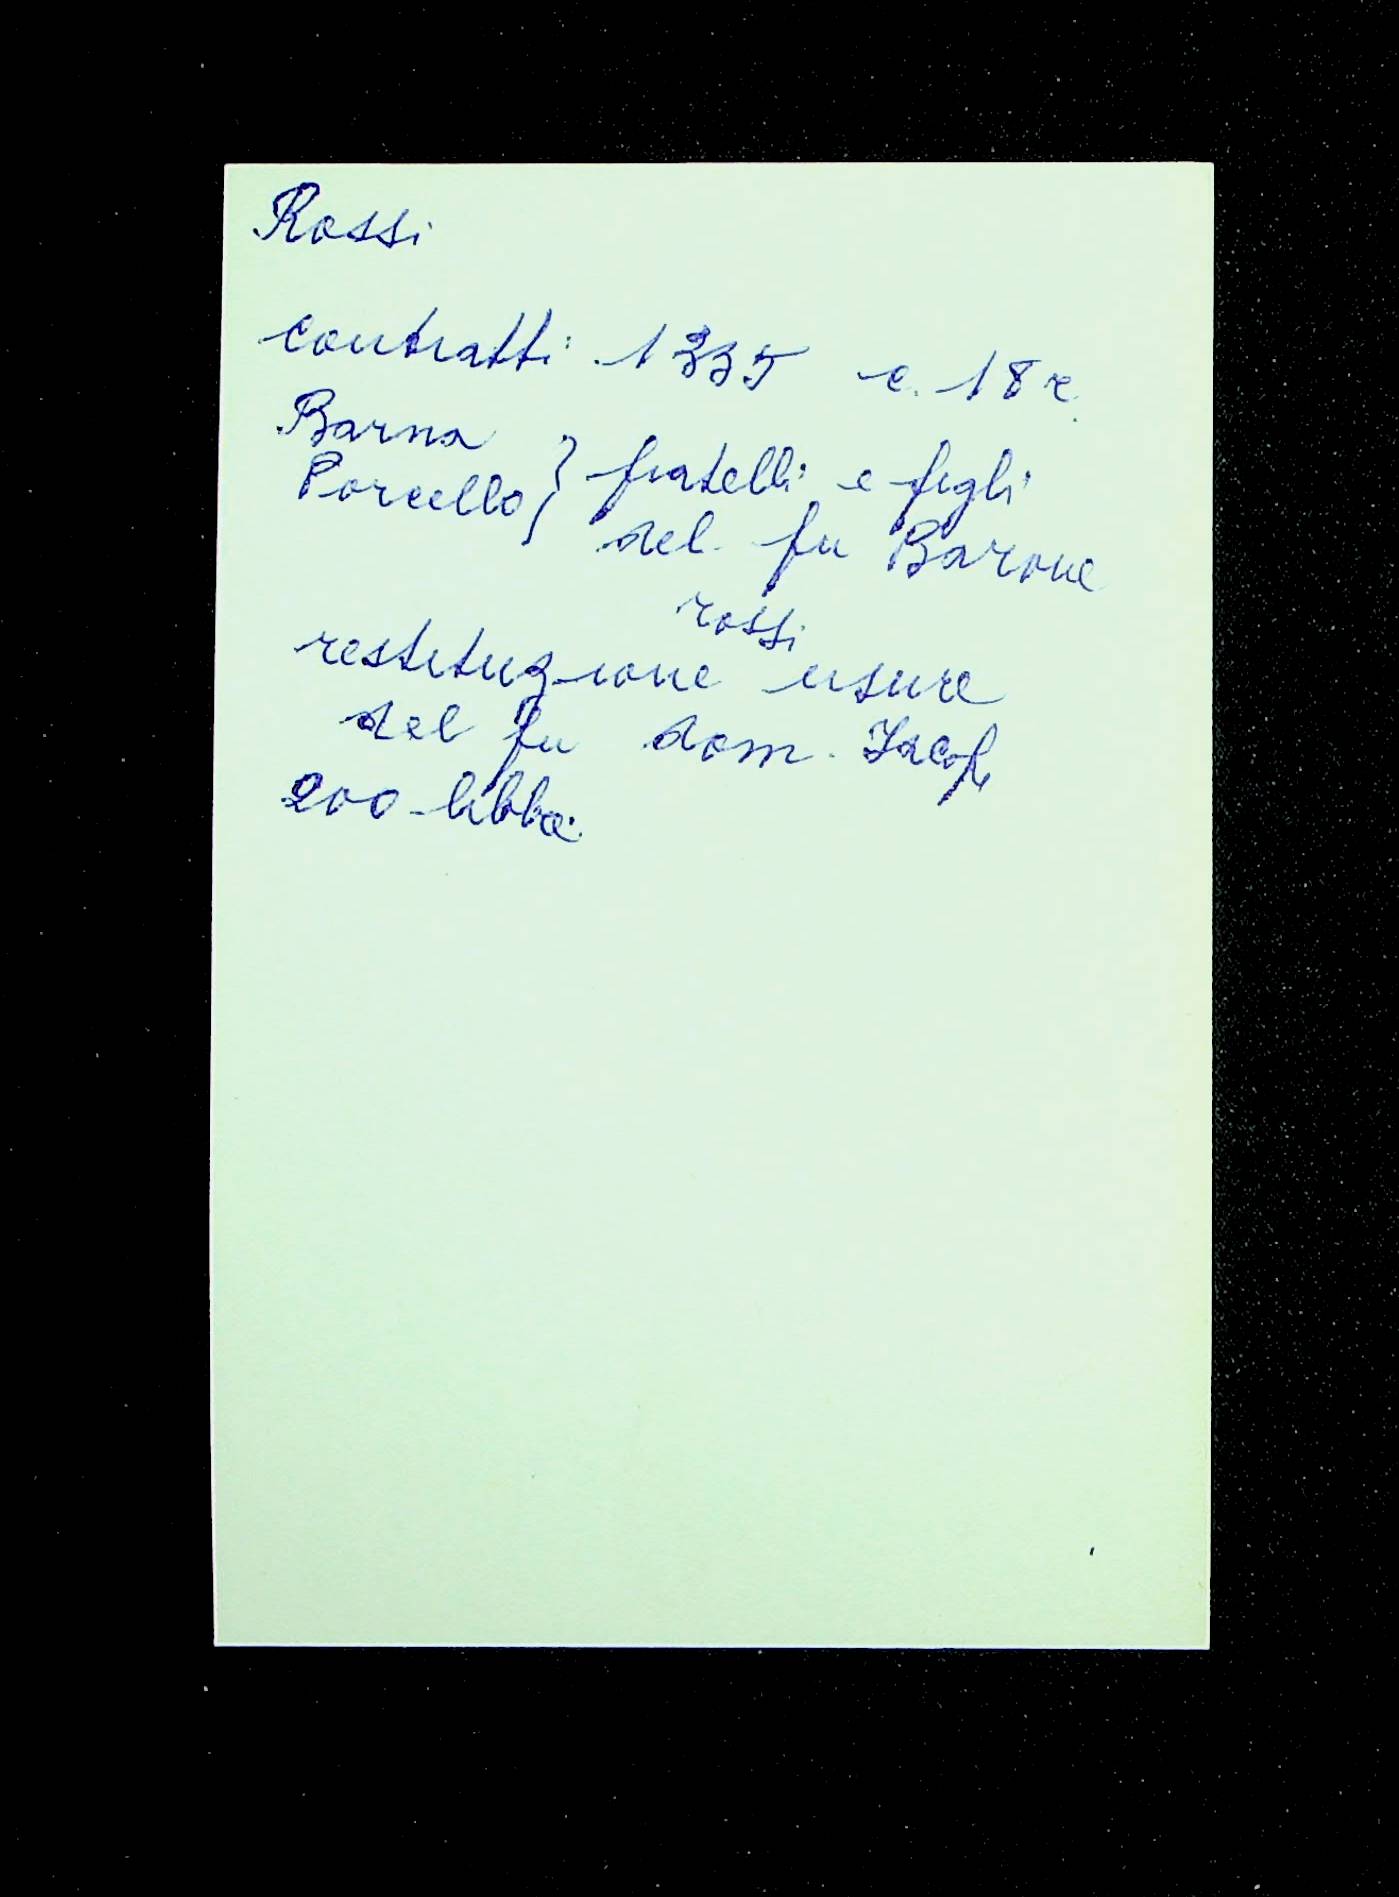 Rossi
contratti 1335 c. 18 r.
Barna
Porcello } fratelli e figli
del fu Barone
rossi
restituzione usure
del fu dom. Iacopo
200 libbre